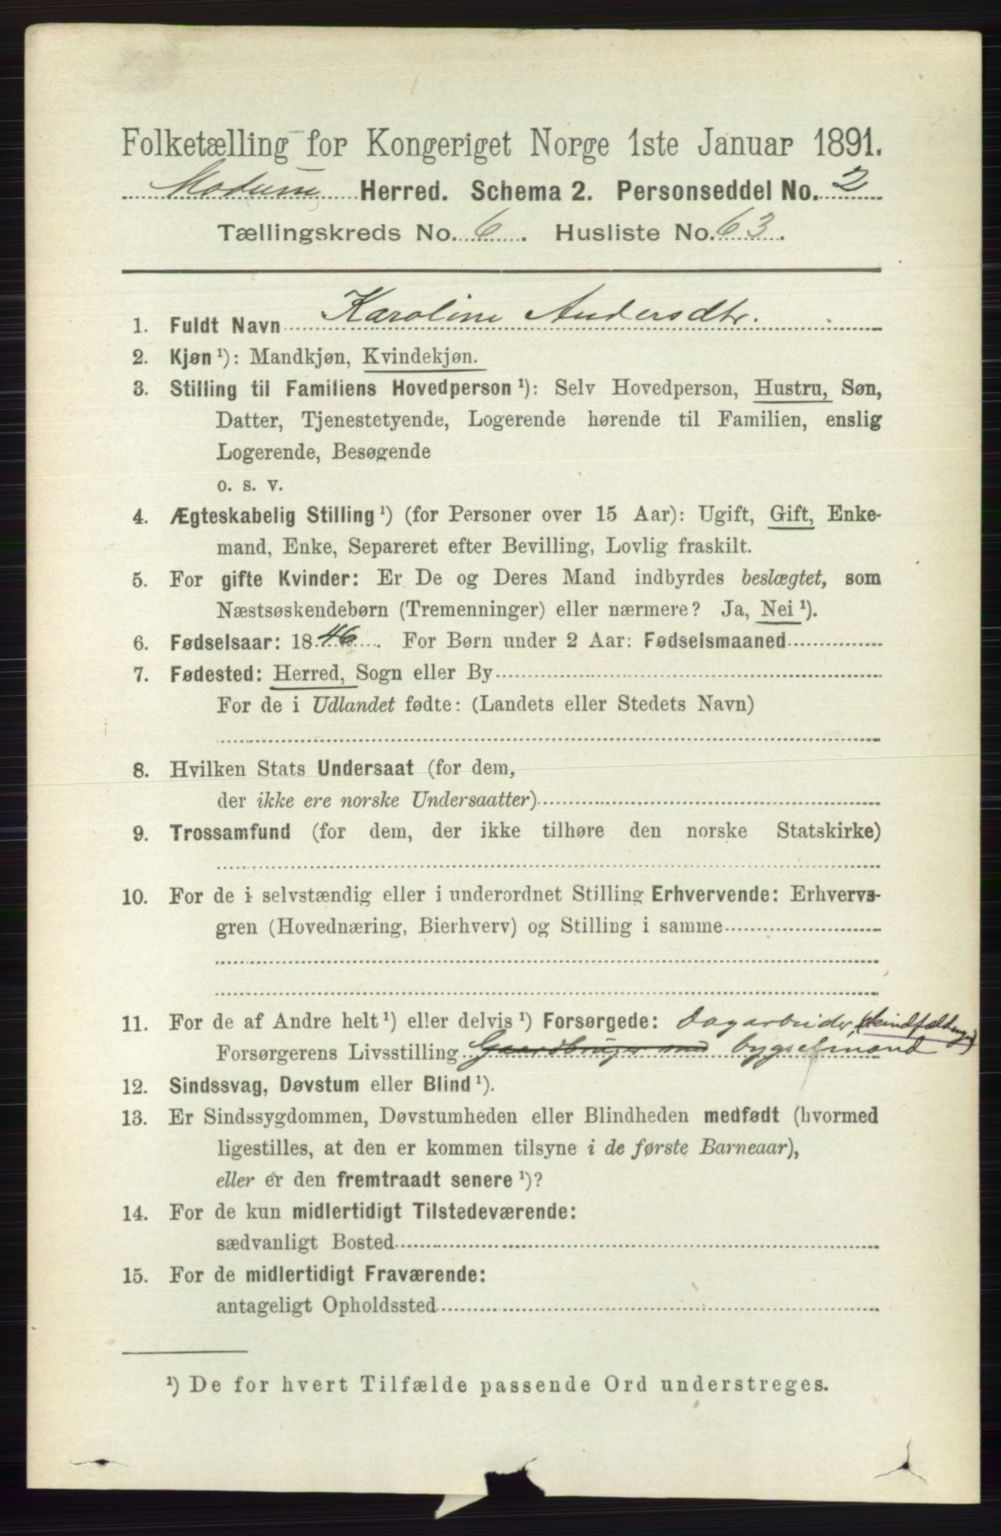 Folketælling for Kongeriget Norge 1ste Januar 1891.
Modum Herred. Schema 2. Personseddel No. 2
Tællingskreds No. 6. Husliste No. 63.
1. Fuldt Navn Karoline Andersdtr.
2. Kjøn ¹): Mandkjøn, Kvindekjøn.
3. Stilling til Familiens Hovedperson ¹): Selv Hovedperson, Hustru, Søn,
Datter, Tjenestetyende, Logerende hørende til Familien, enslig
Logerende, Besøgende
o. s. v.
4. Ægteskabelig Stilling ¹) (for Personer over 15 Aar): Ugift, Gift, Enke-
mand, Enke, Separeret efter Bevilling, Lovlig fraskilt.
5. For gifte Kvinder: Er De og Deres Mand indbyrdes beslægtet, som
Næstsøskendebørn (Tremenninger) eller nærmere? Ja, Nei ¹).
6. Fødselsaar: 1846. For Børn under 2 Aar: Fødselsmaaned
7. Fødested: Herred, Sogn eller By
For de i Udlandet fødte: (Landets eller Stedets Navn)
8. Hvilken Stats Undersaat (for dem,
der ikke ere norske Undersaatter)
9. Trossamfund (for dem, der ikke tilhøre den norske Statskirke)
10. For de i selvstændig eller i underordnet Stilling Erhvervende: Erhvervs-
gren (Hovednæring, Bierhverv) og Stilling i samme
11. For de af Andre helt ¹) eller delvis ¹) Forsørgede: Dagarbeider
Forsørgerens Livsstilling Gaardbruger bygselmand
12. Sindssvag, Døvstum eller Blind ¹).
13. Er Sindssygdommen, Døvstumheden eller Blindheden medfødt (hvormed
ligestilles, at den er kommen tilsyne i de første Barneaar),
eller er den fremtraadt senere ¹)?
14. For de kun midlertidigt Tilstedeværende:
sædvanligt Bosted
15. For de midlertidigt Fraværende:
antageligt Opholdssted
¹) De for hvert Tilfælde passende Ord understreges.